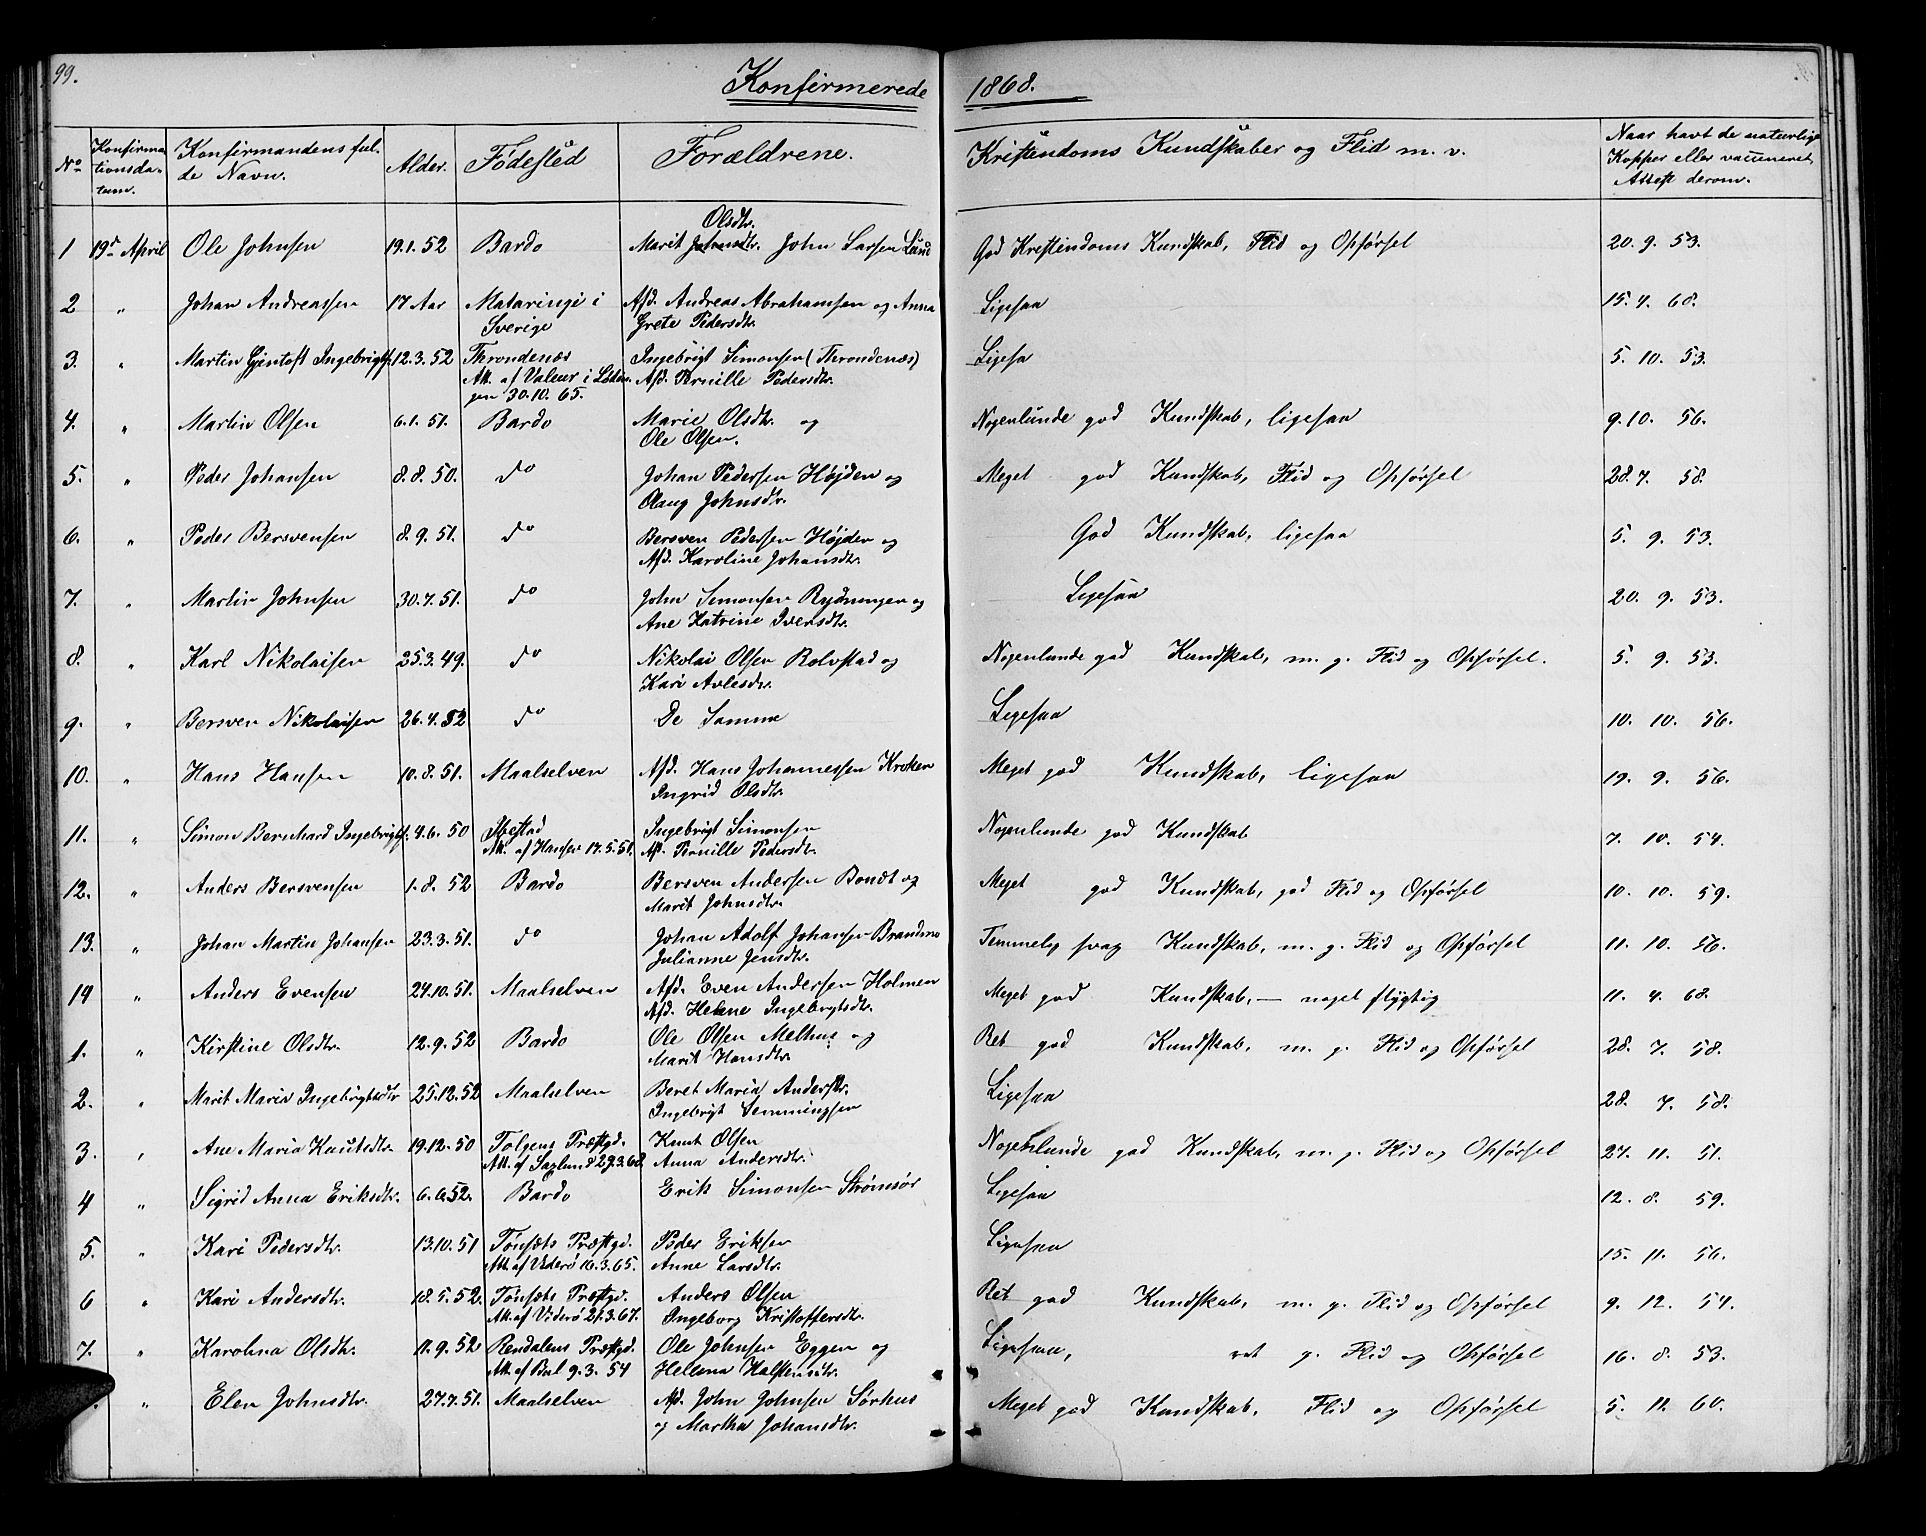 99.
Konfirmerede 1868.
No Konfirmationsdatum. Konfirmandens fulde Navn. Alder. Födestèd Forældrene. Kristendoms Kundskaber og Flid m. v. Naar havt de naturlige Kopper eller vaccineret, Attest derom.
1 19de April Ole Johnsen 19.1.52 Bardo Marit Johnsdtr. Olsdtr. John Larsen Lund God Kristendoms Kundskab, Flid og Opførsel 20. 9. 53.
2 " Johan Andreassen 17 Aar Mataringi i Sverige Afd. Andreas Abrahamsen og Anna Grete Pedersdtr. Ligesaa 15. 4. 68.
3. " Martin Gjentoft Ingebrigts. 12.3.52 Throndenæs Att. af Valeur i Lødingen 30.10.65. Ingebrigt Simonsen (Throndenæs) Afd. Pernille Pedersdtr. Ligesa 5. 10. 53.
4. " Martin Olsen 6.1.51. Bardo Marie Olsdtr. og Ole Olsen. Nogenlunde god Kundskab, ligesaa 9. 10. 56.
5. " Peder Johansen 8.8.50. do Johan Pedersen Højden og Olaug Johnsdtr. Meget god Kundskab, Flid og Opførsel 28. 7. 58.
6. " Peder Bersvensen 8.9.51. do Bersven Pedersen Højden og Afd. Karoline Johansdtr. God Kundskab, ligesaa 5. 9. 53.
7. " Martin Johnsen 30.7.51. do John Simonsen Rydningen og Ane Katrine Iversdtr. Ligesaa 20. 9. 53.
8. " Karl Nikolaisen 25.3.49. do Nikolai Olsen Rolvstad og Kari Avlesdtr. Nogenlunde god Kundskab, m. g. Flid og Opførsel. 5. 9. 53.
9. " Bersven Nikolaisen 26.4.52 do De Samme Ligesaa 10. 10. 56.
10. " Hans Hansen 10.8.51. Maalselven Afd. Hans Johannessen Kroken Ingrid Olsdtr. Meget god Kundskab, ligesaa 19. 9. 56.
11. " Simon Bernhard Ingebrigts. 4.6.50 Ibestad Att. af Hansen 17.5.51. Ingebrigt Simonsen Afd. Pernille Pedersdtr. Nogenlunde god Kundskab 7. 10. 54.
12. " Anders Bersvensen 1.8.52 Bardo Bersven Andersen Bondt og Marit Johnsdtr. Meget god Kundskab, god Flid og Opførsel 10. 10. 59.
13. " Johan Martin Johansen 23.3.51. do Johan Adolf Johansen Brandmo Julianne Jensdtr. Temmelig svag Kundskab, m. g. Flid og Opførsel 11. 10. 56.
14 " Anders Evensen 24.10.51. Maalselven Afd. Even Andersen Holmen Afd. Helene Ingebrigtsdtr. Meget god Kundskab, — noget flygtig 11. 4. 68.
1. " Kirstine Olsdtr. 12.9.52 Bardo Ole Olsen Melhus og Marit Hansdtr. Ret god Kundskab, m. g. Flid og Opførsel 28. 7. 58.
2. " Marit Maria Ingebrigtsdtr 25.12.52 Maalselven Beret Maria Andersdtr. Ingebrigt Semmingsen Ligesaa 28. 7. 58.
3. " Ane Maria Knutsdtr. 19.12.50 Tolgens Præstgd. Att. af Saxlund 29.3.68 Knut Olsen Anna Andersdtr. Nogenlunde god Kundskab, m. g. Flid og Opførsel 27. 11. 51.
4 " Sigrid Anna Eriksdtr. 6.6.52. Bardo Erik Simonsen Strømsør Ligesaa 12. 8. 59.
5. " Kari Pedersdtr. 13.10.51 Tönsets Præstgd. Att. af Viderö 16.3.65. Peder Eriksen Anne Larsdtr. Ligesaa 15. 11. 56.
6 " Kari Andersdtr. 18.5.52. Tönsets Præstgd. Att. af Viderö 21.3.67. Anders Olsen Ingeborg Kristoffersdtr. Ret god Kundskab, m. g. Flid og Opførsel 9. 12. 54.
7. " Karolina Olsdtr. 11.9.52 Rendalens Præstgd. Att. af Bul 9.3.54 Ole Johnsen Eggen og Hellena Halstensdtr. Ligesaa, ret g. Flid og Opførsel 16. 8. 53.
" Elen Johnsdtr. 27.7.51. Maalselven Afd. John Johnsen Sørhus og Martha Johansdtr. Meget god Kundskab, Flid og Opførsel 5. 11. 60.